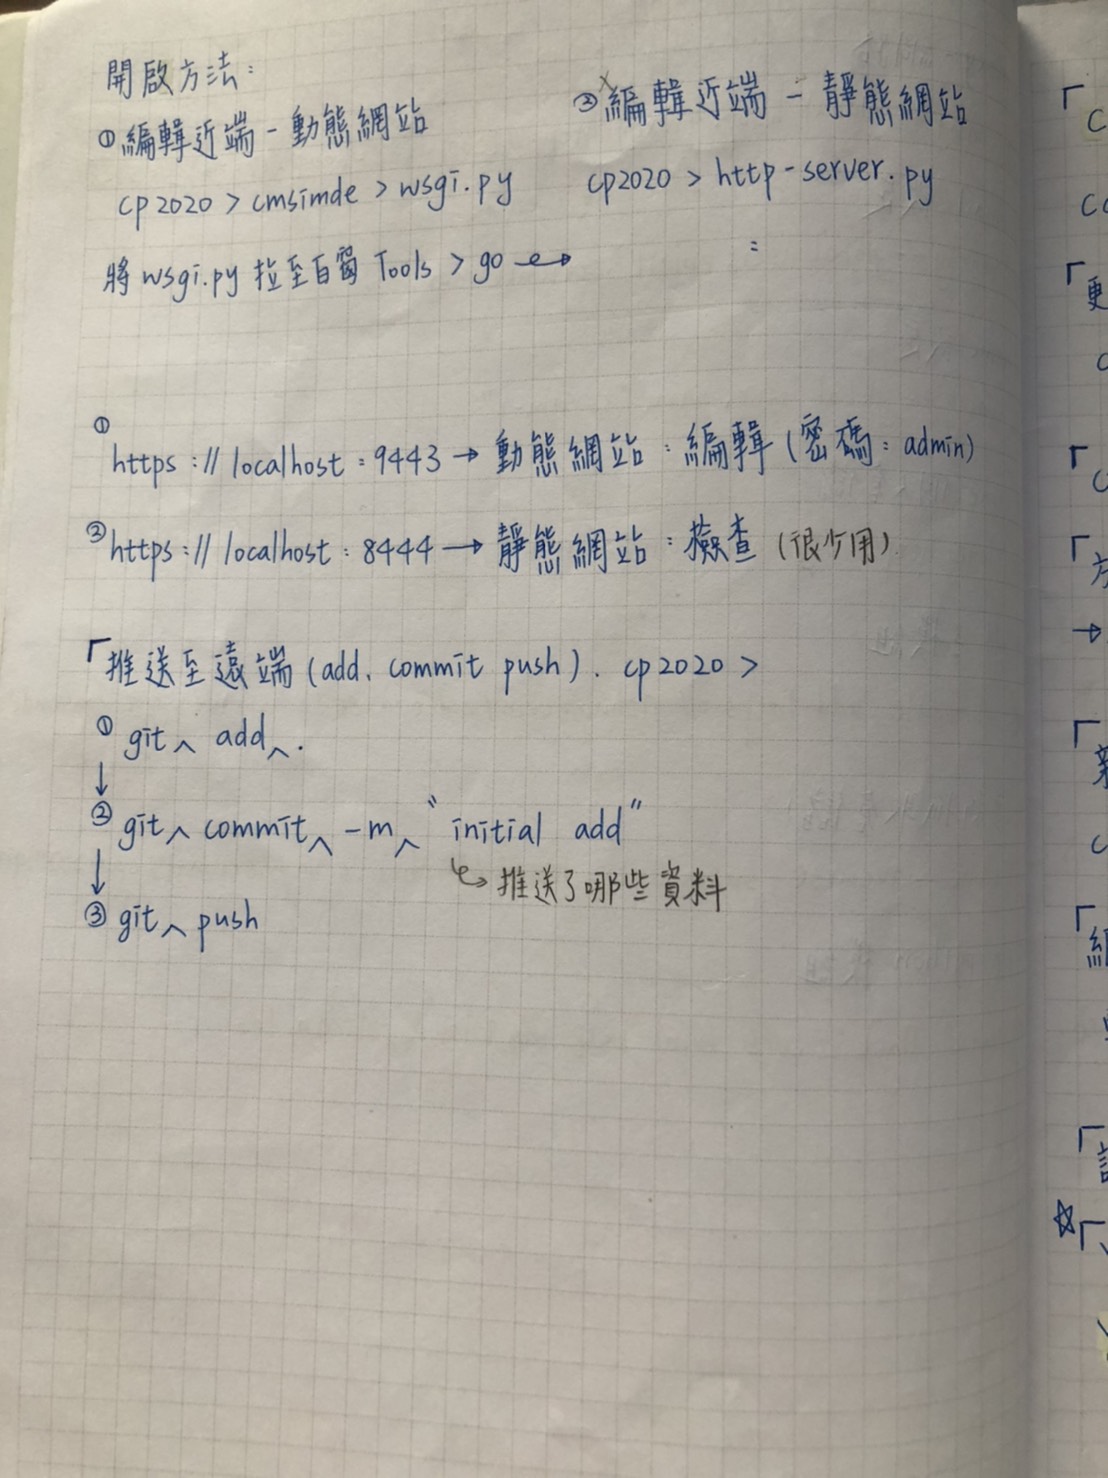 開啟方法：
①編輯近端-動態網站
cp2020 > cmsimde > wsgi.py
將 wsgi.py 拉至白窗 Tools > go →
②編輯近端 - 靜態網站
cp2020 > http-server.py
:
① https://localhost:9443 → 動態網站：編輯(密碼：admin)
② https://localhost:8444 → 靜態網站：檢查 (很少用)
「推送至遠端 (add. commit push). cp2020 >
① git ^ add ^ .
↓
② git ^ commit ^ -m ^ "initial add"
↳ 推送了哪些資料
↓
③ git ^ push
「C
「更
「方
→
「新
「編
☆「